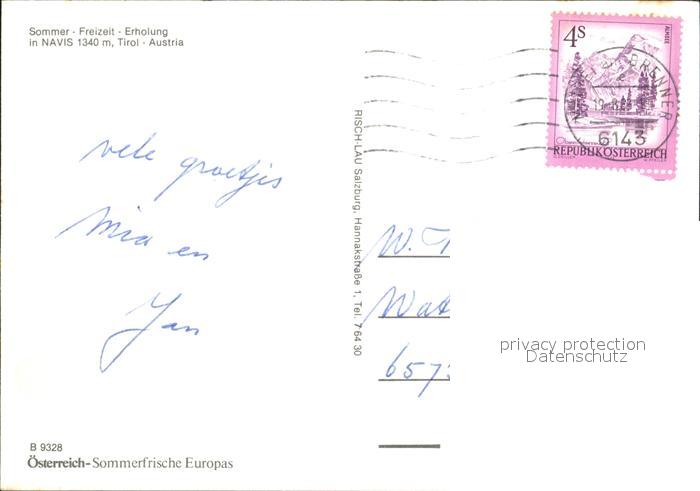 Sommer · Freizeit · Erholung
in NAVIS 1340 m, Tirol · Austria
vele groetjes
Mia en
Jan
B 9328
Österreich-Sommerfrische Europas
RISCH-LAU Salzburg, Hannakstraße 1, Tel. 7 64 30
4S
ALMSEE
BRENNER
6143
REPUBLIK ÖSTERREICH
W. T
Wat
657
privacy protection
Datenschutz